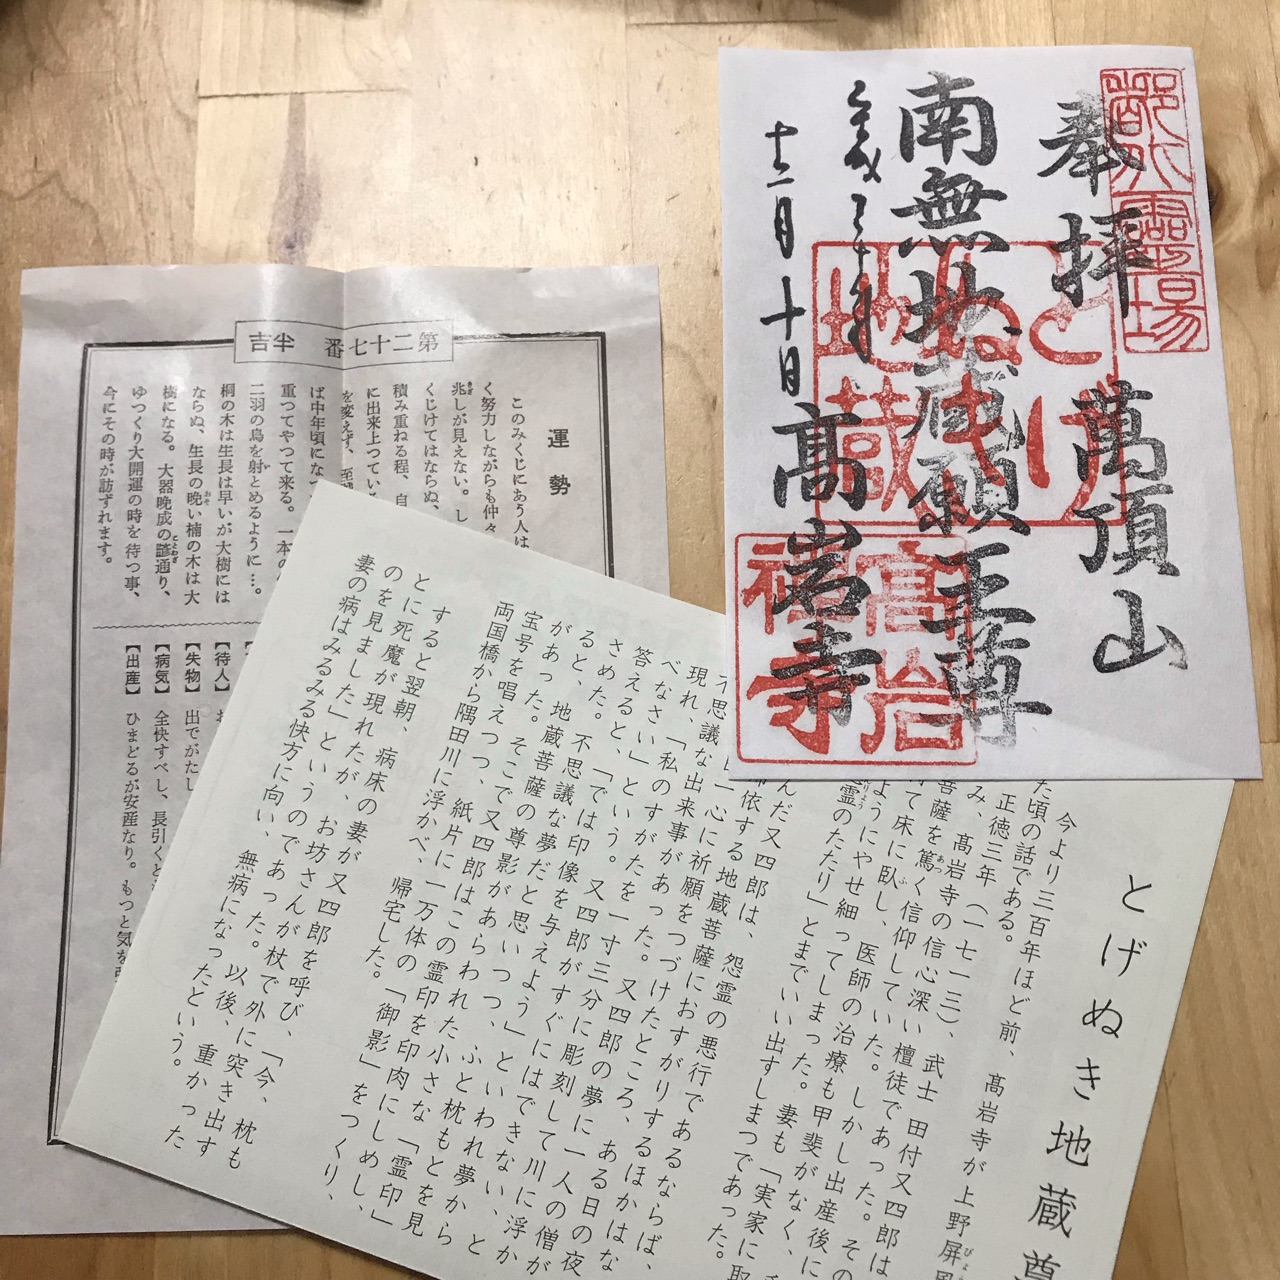 奉拝 萬頂山
南無地蔵願王尊
平成三十年
十二月十日
髙岩寺
とげぬき
地蔵
第二十七番 半吉
運勢
このみくじにあう人は
く努力しながらも仲々
兆しが見えない。し
くじけてはならぬ、
積み重ねる程、自
に出来上つている
を変えず、至
ば中年頃になつ
重つてやつて来る。一本の
二羽の鳥を射とめるように…。
桐の木は生長は早いが大樹には
ならぬ、生長の晩い楠の木は大
樹になる。大器晩成の諺通り、
ゆつくり大開運の時を待つ事、
今にその時が訪ずれます。
【待人】
【失物】 出でがたし
【病気】 全快すべし、長引くと
【出産】 ひまどるが安産なり。もつと気を
とげぬき地蔵尊
今より三百年ほど前、髙岩寺が上野屏風
た頃の話である。
正徳三年(一七一三)、武士 田付又四郎は
み、髙岩寺の信心深い檀徒であった。その
菩薩を篤く信仰していた。しかし出産後に
けて床に臥し、医師の治療も甲斐がなく、
ようにやせ細ってしまった。妻も「実家に取
霊のたたり」とまでいい出すしまつであった。
んだ又四郎は、怨霊の悪行であるならば、
帰依する地蔵菩薩におすがりするほかはな
一心に祈願をつづけたところ、ある日の夜
不思議な出来事があった。又四郎の夢に一人の僧が
現れ、「私のすがたを一寸三分に彫刻して川に浮か
べなさい」という。又四郎がすぐにはできない、と
答えると、「では印像を与えよう」といわれ夢から
さめた。不思議な夢だと思いつつ、ふと枕もとを見
ると、地蔵菩薩の尊影があらわれた小さな「霊印」
があった。そこで又四郎はこの霊印を印肉にしめし、
宝号を唱えつつ、紙片に一万体の「御影」をつくり、
両国橋から隅田川に浮かべ、帰宅した。
すると翌朝、病床の妻が又四郎を呼び、「今、枕も
とに死魔が現れたが、お坊さんが杖で外に突き出す
のを見ました」というのであった。以後、重かった
妻の病はみるみる快方に向い、無病になったという。